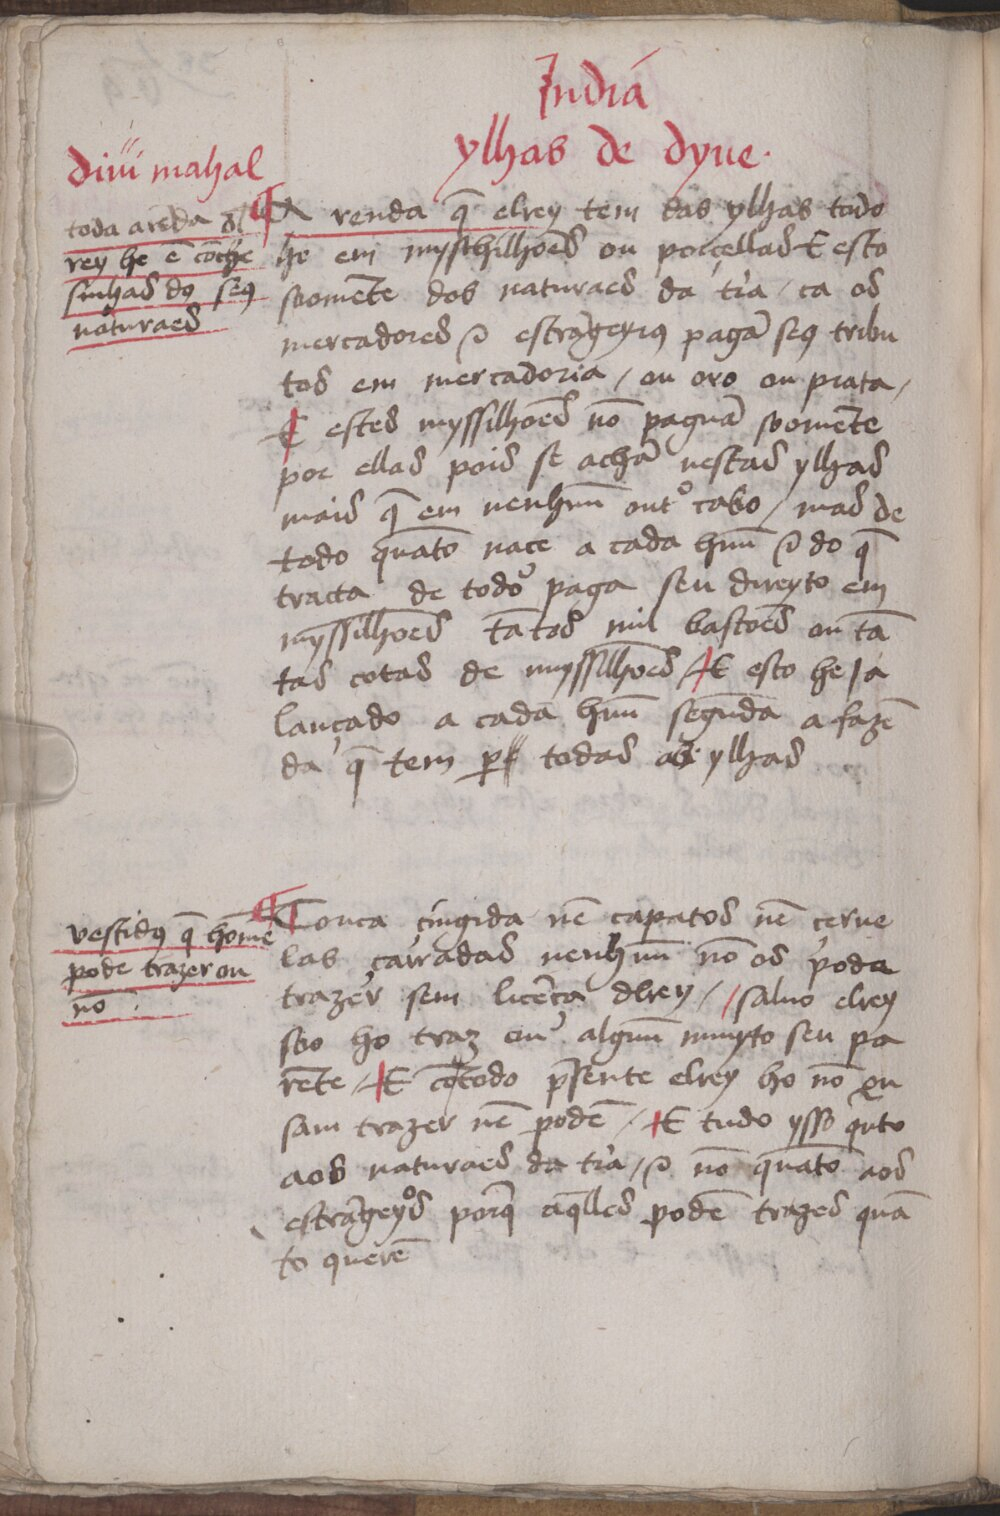 Jndiá
ylhas de dyue.
diui mahal
toda a rẽda dl
rey he ẽ cõche
sinhas dos seus
naturaes
A renda q̃ elrey tem das ylhas todo
ho em mysthilhoẽs ou porçellas E esto
soomẽte dos naturaes da tr̃a / ca os
mercadores & estrãgeyros pagã seus tribu
tos em mercadoria / ou oro ou prata /
E estes myssilhoẽs nõ paguã soomẽte
por ellas pois se achã nestas ylhas
mais q̃ em nenhuũ outº cabo / mas de
todo quãto nace a cada huũ & do q̃
tracta de todo paga seu direyto em
myssilhoẽs tãtos mil bastoẽs ou tã
tas cotas de myssilhoẽs / E esto he ja
lançado a cada huũ segũda a fazẽ
da q̃ tem per todas as ylhas
vestidos q̃ home
pode trazer ou
nõ .
Touca çingida nẽ çapatos nẽ cerue
las çarradas nenhuũ nõ os poda
trazer sem licẽça dlrey / / saluo elrey
soo ho traz ou alguũ muyto seu pa
rẽte / E cõ todo p̃sente elrey ho nõ ou
sam trazer nẽ podẽ / E tudo ysso quto
aos naturaes da tr̃a / & nõ quãto aos
estrãgeyºs porq̃ aq̃lles podẽ trazes quã
to querẽ